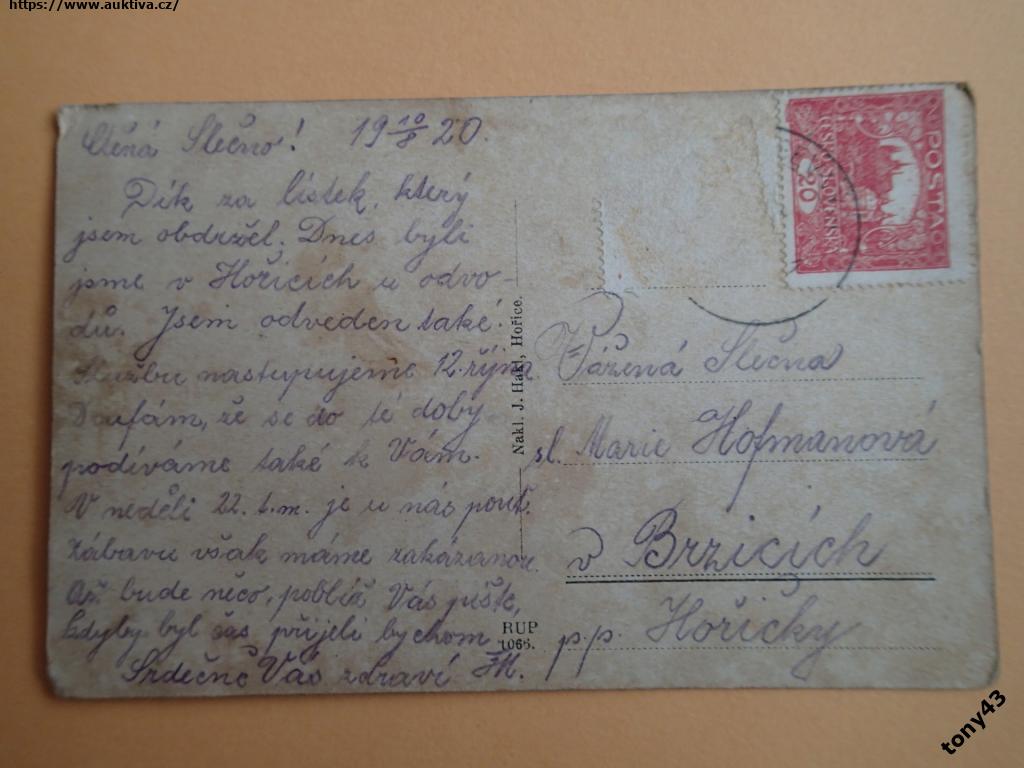 https://www.auktiva.cz/
Ctěná Slečno! 19 10/8 20.
Dík za lístek, který
jsem obdržel. Dnes byli
jsme v Hořicích u odvo-
dů. Jsem odveden také.
Službu nastupujeme 12. říj.
Doufám, že se do té doby
podíváme také k Vám.
V neděli 22. t.m. je u nás pouť.
Zábavu však máme zakázanou.
Až bude něco, poblíž Vás pište,
kdyby byl čas přijeli bychom.
Srdečně Vás zdraví FM.
Nakl. J. Hakl, Hořice.
RUP
1066.
POSTA
ČESKO-SLOVENSKÁ
20
Vážená Slečna
sl. Marie Hofmanová
v Brzicích
p.p. Hořičky
tony43